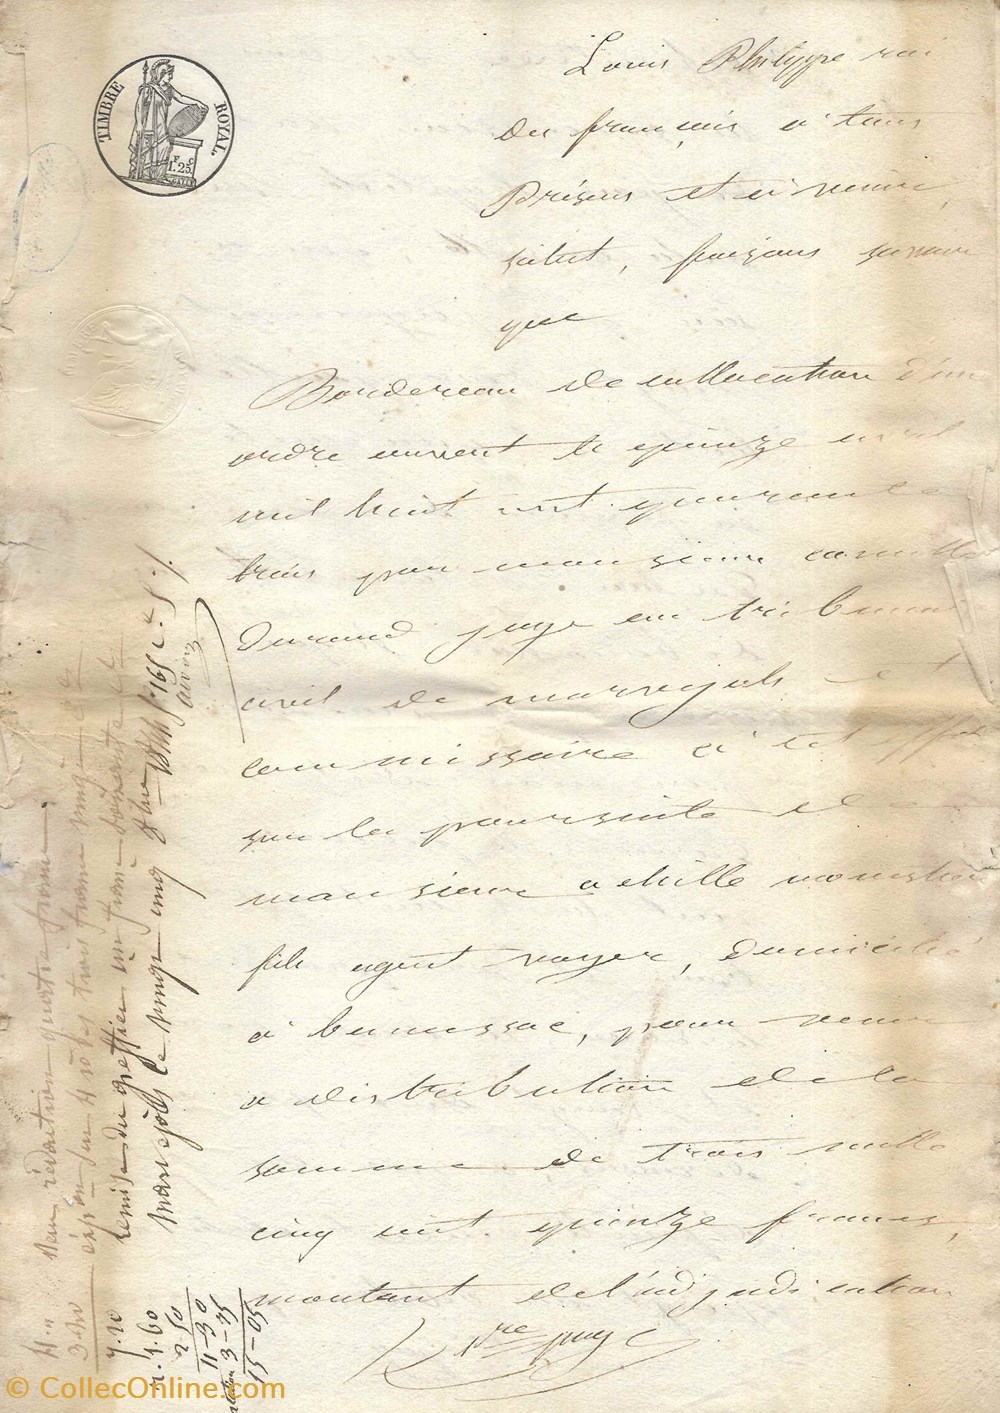 TIMBRE ROYAL.
F C
1.25.
Louis Philippe roi
des français, a tous
Présens et à venir,
salut, faisons savoir
que
Bordereau de collocation d'un
ordre ouvert le quinze avril
mil huit cent quarante
trois par monsieur camille
durand juge au tribunal
civil de marvejols et
commissaire à cet effet
sur la poursuite de
monsieur achille
fils agent voyer, domicilié
à banassac, pour venir
a distribution de la
somme de trois mille
cinq cent quinze francs,
montant de l'adjudication
1re page
rédaction quatre francs.
trois francs vingt
remise du greffier un franc soixante
marvejols le vingt cinq
7.20
1.60
2.50
11-30
3-75
15-05
© CollecOnline.com